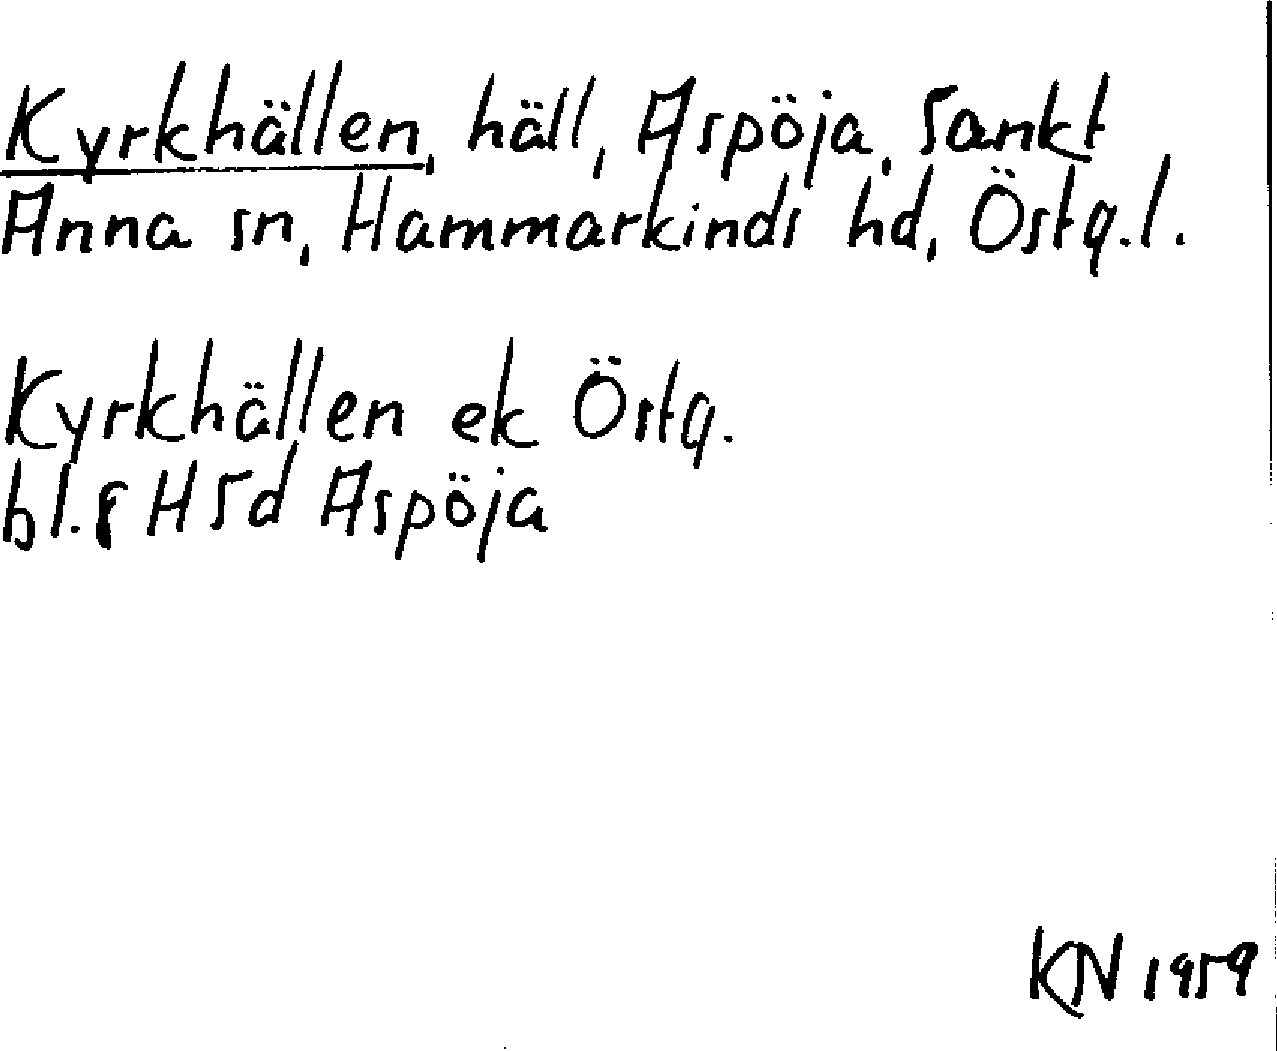 Kyrkhällen, häll, Aspöja, Sankt
Anna sn, Hammarkinds hd, Östg.l.
Kyrkhällen ek Östg.
bl. 8 H 5d Aspöja
KN 1959